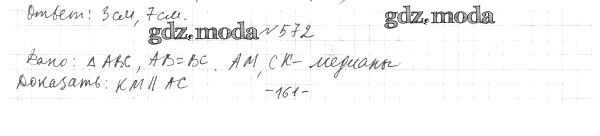 Ответ: 3см, 7см.
gdz.moda
gdz.moda №572
Дано: △ABC, AB=BC. AM, CK- медианы
Доказать: KM || AC
-161-